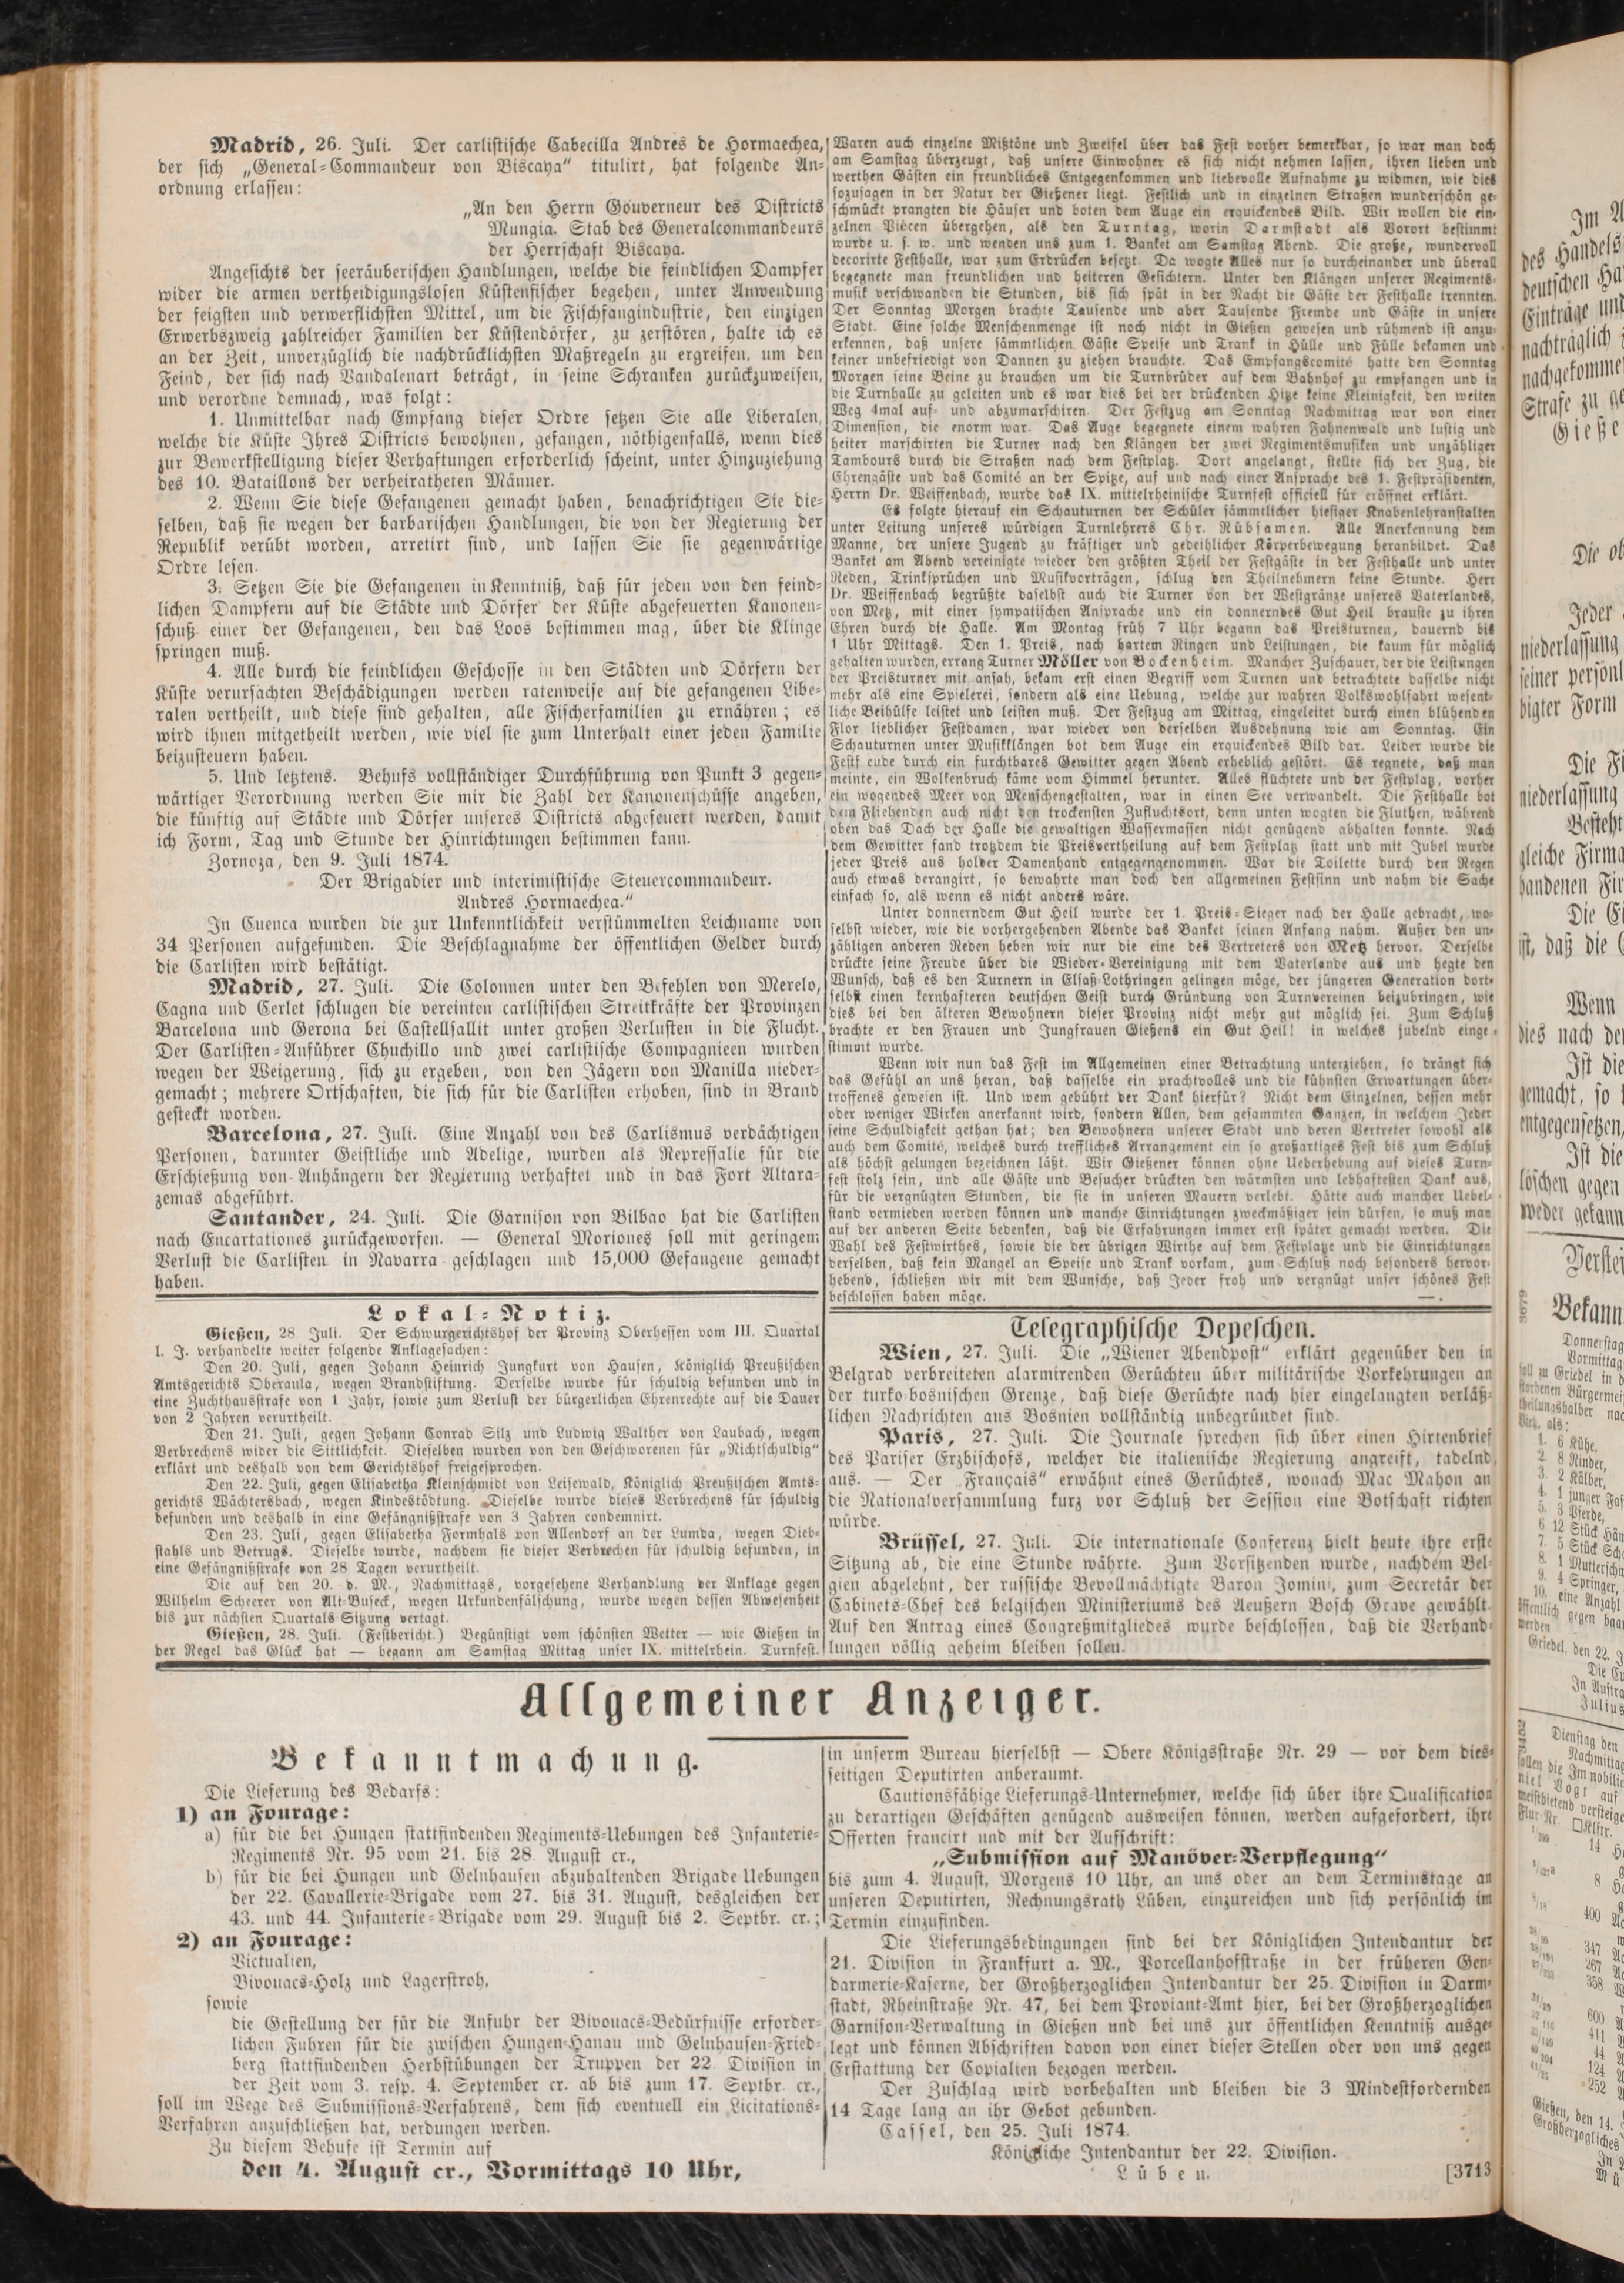 Madrid, 26. Juli. Der carlistische Cabecilla Andres de Hormaechea,
der sich „General-Commandeur von Biscaya“ titulirt, hat folgende An-
ordnung erlassen:
„An den Herrn Gouverneur des Districts
Mungia. Stab des Generalcommandeurs
der Herrschaft Biscaya.
Angesichts der seeräuberischen Handlungen, welche die feindlichen Dampfer
wider die armen vertheidigungslosen Küstenfischer begehen, unter Anwendung
der feigsten und verwerflichsten Mittel, um die Fischfangindustrie, den einzigen
Erwerbszweig zahlreicher Familien der Küstendörfer, zu zerstören, halte ich es
an der Zeit, unverzüglich die nachdrücklichsten Maßregeln zu ergreifen, um den
Feind, der sich nach Vandalenart beträgt, in seine Schranken zurückzuweisen,
und verordne demnach, was folgt:
1. Unmittelbar nach Empfang dieser Ordre setzen Sie alle Liberalen,
welche die Küste Ihres Districts bewohnen, gefangen, nöthigenfalls, wenn dies
zur Bewerkstelligung dieser Verhaftungen erforderlich scheint, unter Hinzuziehung
des 10. Bataillons der verheiratheten Männer.
2. Wenn Sie diese Gefangenen gemacht haben, benachrichtigen Sie die-
selben, daß sie wegen der barbarischen Handlungen, die von der Regierung der
Republik verübt worden, arretirt sind, und lassen Sie sie gegenwärtige
Ordre lesen.
3. Setzen Sie die Gefangenen in Kenntniß, daß für jeden von den feind-
lichen Dampfern auf die Städte und Dörfer der Küste abgefeuerten Kanonen-
schuß einer der Gefangenen, den das Loos bestimmen mag, über die Klinge
springen muß.
4. Alle durch die feindlichen Geschosse in den Städten und Dörfern der
Küste verursachten Beschädigungen werden ratenweise auf die gefangenen Libe-
ralen vertheilt, und diese sind gehalten, alle Fischerfamilien zu ernähren; es
wird ihnen mitgetheilt werden, wie viel sie zum Unterhalt einer jeden Familie
beizusteuern haben.
5. Und letztens. Behufs vollständiger Durchführung von Punkt 3 gegen-
wärtiger Verordnung werden Sie mir die Zahl der Kanonenschüsse angeben,
die künftig auf Städte und Dörfer unseres Districts abgefeuert werden, damit
ich Form, Tag und Stunde der Hinrichtungen bestimmen kann.
Zornoza, den 9. Juli 1874.
Der Brigadier und interimistische Steuercommandeur.
Andres Hormaechea.“
In Cuenca wurden die zur Unkenntlichkeit verstümmelten Leichname von
34 Personen aufgefunden. Die Beschlagnahme der öffentlichen Gelder durch
die Carlisten wird bestätigt.
Madrid, 27. Juli. Die Colonnen unter den Befehlen von Merelo,
Cagna und Cerlet schlugen die vereinten carlistischen Streitkräfte der Provinzen
Barcelona und Gerona bei Castellfallit unter großen Verlusten in die Flucht.
Der Carlisten-Anführer Chuchillo und zwei carlistische Compagnieen wurden
wegen der Weigerung, sich zu ergeben, von den Jägern von Manilla nieder-
gemacht; mehrere Ortschaften, die sich für die Carlisten erhoben, sind in Brand
gesteckt worden.
Barcelona, 27. Juli. Eine Anzahl von des Carlismus verdächtigen
Personen, darunter Geistliche und Adelige, wurden als Repressalie für die
Erschießung von Anhängern der Regierung verhaftet und in das Fort Altara-
zemas abgeführt.
Santander, 24. Juli. Die Garnison von Bilbao hat die Carlisten
nach Encartationes zurückgeworfen. — General Moriones soll mit geringem
Verlust die Carlisten in Navarra geschlagen und 15,000 Gefangene gemacht
haben.
Lokal-Notiz.
Gießen, 28. Juli. Der Schwurgerichtshof der Provinz Oberhessen vom III. Quartal
l. J. verhandelte weiter folgende Anklagesachen:
Den 20. Juli, gegen Johann Heinrich Jungkurt von Hausen, Königlich Preußischen
Amtsgerichts Oberaula, wegen Brandstiftung. Derselbe wurde für schuldig befunden und in
eine Zuchthausstrafe von 1 Jahr, sowie zum Verlust der bürgerlichen Ehrenrechte auf die Dauer
von 2 Jahren verurtheilt.
Den 21. Juli, gegen Johann Conrad Silz und Ludwig Walther von Laubach, wegen
Verbrechens wider die Sittlichkeit. Dieselben wurden von den Geschworenen für „Nichtschuldig“
erklärt und deshalb von dem Gerichtshof freigesprochen.
Den 22. Juli, gegen Elisabetha Kleinschmidt von Leisewald, Königlich Preußischen Amts-
gerichts Wächtersbach, wegen Kindestödtung. Dieselbe wurde dieses Verbrechens für schuldig
befunden und deshalb in eine Gefängnißstrafe von 3 Jahren condemnirt.
Den 23. Juli, gegen Elisabetha Formhals von Allendorf an der Lumda, wegen Dieb-
stahls und Betrugs. Dieselbe wurde, nachdem sie dieser Verbrechen für schuldig befunden, in
eine Gefängnißstrafe von 28 Tagen verurtheilt.
Die auf den 20. d. M., Nachmittags, vorgesehene Verhandlung der Anklage gegen
Wilhelm Scheerer von Alt-Buseck, wegen Urkundenfälschung, wurde wegen dessen Abwesenheit
bis zur nächsten Quartals-Sitzung vertagt.
Gießen, 28. Juli. (Festbericht.) Begünstigt vom schönsten Wetter — wie Gießen in
der Regel das Glück hat — begann am Samstag Mittag unser IX. mittelrhein. Turnfest.
Waren auch einzelne Mißtöne und Zweifel über das Fest vorher bemerkbar, so war man doch
am Samstag überzeugt, daß unsere Einwohner es sich nicht nehmen lassen, ihren lieben und
werthen Gästen ein freundliches Entgegenkommen und liebevolle Aufnahme zu widmen, wie dies
sozusagen in der Natur der Gießener liegt. Festlich und in einzelnen Straßen wunderschön ge-
schmückt prangten die Häuser und boten dem Auge ein erquickendes Bild. Wir wollen die ein-
zelnen Piecen übergehen, als den Turntag, worin Darmstadt als Vorort bestimmt
wurde u. s. w. und wenden uns zum 1. Banket am Samstag Abend. Die große, wundervoll
decorirte Festhalle, war zum Erdrücken besetzt. Da wogte Alles nur so durcheinander und überall
begegnete man freundlichen und heiteren Gesichtern. Unter den Klängen unserer Regiments-
musik verschwanden die Stunden, bis sich spät in der Nacht die Gäste der Festhalle trennten.
Der Sonntag Morgen brachte Tausende und aber Tausende Fremde und Gäste in unsere
Stadt. Eine solche Menschenmenge ist noch nicht in Gießen gewesen und rühmend ist anzu-
erkennen, daß unsere sämmtlichen Gäste Speise und Trank in Hülle und Fülle bekamen und
keiner unbefriedigt von Dannen zu ziehen brauchte. Das Empfangscomité hatte den Sonntag
Morgen seine Beine zu brauchen um die Turnbrüder auf dem Bahnhof zu empfangen und in
die Turnhalle zu geleiten und es war dies bei der drückenden Hitze keine Kleinigkeit, den weiten
Weg 4mal auf- und abzumarschiren. Der Festzug am Sonntag Nachmittag war von einer
Dimension, die enorm war. Das Auge begegnete einem wahren Fahnenwald und lustig und
heiter marschirten die Turner nach den Klängen der zwei Regimentsmusiken und unzähliger
Tambours durch die Straßen nach dem Festplatz. Dort angelangt, stellte sich der Zug, die
Ehrengäste und das Comité an der Spitze, auf und nach einer Ansprache des 1. Festpräsidenten,
Herrn Dr. Weiffenbach, wurde das IX. mittelrheinische Turnfest officiell für eröffnet erklärt.
Es folgte hierauf ein Schauturnen der Schüler sämmtlicher hiesiger Knabenlehranstalten
unter Leitung unseres würdigen Turnlehrers Chr. Rübsamen. Alle Anerkennung dem
Manne, der unsere Jugend zu kräftiger und gedeihlicher Körperbewegung heranbildet. Das
Banket am Abend vereinigte wieder den größten Theil der Festgäste in der Festhalle und unter
Reden, Trinksprüchen und Musikvorträgen, schlug den Theilnehmern keine Stunde. Herr
Dr. Weiffenbach begrüßte daselbst auch die Turner von der Westgränze unseres Vaterlandes,
von Metz, mit einer sympatischen Ansprache und ein donnerndes Gut Heil brauste zu ihren
Ehren durch die Halle. Am Montag früh 7 Uhr begann das Preisturnen, dauernd bis
1 Uhr Mittags. Den 1. Preis, nach hartem Ringen und Leistungen, die kaum für möglich
gehalten wurden, errang Turner Möller von Bockenheim. Mancher Zuschauer, der die Leistungen
der Preisturner mit ansah, bekam erst einen Begriff vom Turnen und betrachtete dasselbe nicht
mehr als eine Spielerei, sondern als eine Uebung, welche zur wahren Volkswohlfahrt wesent-
liche Beihülfe leistet und leisten muß. Der Festzug am Mittag, eingeleitet durch einen blühenden
Flor lieblicher Festdamen, war wieder von derselben Ausdehnung wie am Sonntag. Ein
Schauturnen unter Musikklängen bot dem Auge ein erquickendes Bild dar. Leider wurde die
Festf eude durch ein furchtbares Gewitter gegen Abend erheblich gestört. Es regnete, daß man
meinte, ein Wolkenbruch käme vom Himmel herunter. Alles flüchtete und der Festplatz, vorher
ein wogendes Meer von Menschengestalten, war in einen See verwandelt. Die Festhalle bot
dem Fliehenden auch nicht den trockensten Zufluchtsort, denn unten wogten die Fluthen, während
oben das Dach der Halle die gewaltigen Wassermassen nicht genügend abhalten konnte. Nach
dem Gewitter fand trotzdem die Preisvertheilung auf dem Festplatz statt und mit Jubel wurde
jeder Preis aus holder Damenhand entgegengenommen. War die Toilette durch den Regen
auch etwas derangirt, so bewahrte man doch den allgemeinen Festsinn und nahm die Sache
einfach so, als wenn es nicht anders wäre.
Unter donnerndem Gut Heil wurde der 1. Preis-Sieger nach der Halle gebracht, wo-
selbst wieder, wie die vorhergehenden Abende das Banket seinen Anfang nahm. Außer den un-
zähligen anderen Reden heben wir nur die eine des Vertreters von Metz hervor. Derselbe
drückte seine Freude über die Wieder-Vereinigung mit dem Vaterlande aus und hegte den
Wunsch, daß es den Turnern in Elsaß-Lothringen gelingen möge, der jüngeren Generation dort-
selbst einen kernhafteren deutschen Geist durch Gründung von Turnvereinen beizubringen, wie
dies bei den älteren Bewohnern dieser Provinz nicht mehr gut möglich sei. Zum Schluß
brachte er den Frauen und Jungfrauen Gießens ein Gut Heil! in welches jubelnd einge-
stimmt wurde.
Wenn wir nun das Fest im Allgemeinen einer Betrachtung unterziehen, so drängt sich
das Gefühl an uns heran, daß dasselbe ein prachtvolles und die kühnsten Erwartungen über-
troffenes gewesen ist. Und wem gebührt der Dank hierfür? Nicht dem Einzelnen, dessen mehr
oder weniger Wirken anerkannt wird, sondern Allen, dem gesammten Ganzen, in welchem Jeder
seine Schuldigkeit gethan hat; den Bewohnern unserer Stadt und deren Vertreter sowohl als
auch dem Comité, welches durch treffliches Arrangement ein so großartiges Fest bis zum Schluß
als höchst gelungen bezeichnen läßt. Wir Gießener können ohne Ueberhebung auf dieses Turn-
fest stolz sein, und alle Gäste und Besucher drückten den wärmsten und lebhaftesten Dank aus,
für die vergnügten Stunden, die sie in unseren Mauern verlebt. Hätte auch mancher Uebel-
stand vermieden werden können und manche Einrichtungen zweckmäßiger sein dürfen, so muß man
auf der anderen Seite bedenken, daß die Erfahrungen immer erst später gemacht werden. Die
Wahl des Festwirthes, sowie die der übrigen Wirthe auf dem Festplatze und die Einrichtungen
derselben, daß kein Mangel an Speise und Trank vorkam, zum Schluß noch besonders hervor-
hebend, schließen wir mit dem Wunsche, daß Jeder froh und vergnügt unser schönes Fest
beschlossen haben möge. —.
Telegraphische Depeschen.
Wien, 27. Juli. Die „Wiener Abendpost“ erklärt gegenüber den in
Belgrad verbreiteten alarmirenden Gerüchten über militärische Vorkehrungen an
der turko-bosnischen Grenze, daß diese Gerüchte nach hier eingelangten verläß-
lichen Nachrichten aus Bosnien vollständig unbegründet sind.
Paris, 27. Juli. Die Journale sprechen sich über einen Hirtenbrief
des Pariser Erzbischofs, welcher die italienische Regierung angreift, tadelnd
aus. — Der „Français“ erwähnt eines Gerüchtes, wonach Mac Mahon an
die Nationalversammlung kurz vor Schluß der Session eine Botschaft richten
würde.
Brüssel, 27. Juli. Die internationale Conferenz hielt heute ihre erste
Sitzung ab, die eine Stunde währte. Zum Vorsitzenden wurde, nachdem Bel-
gien abgelehnt, der russische Bevollmächtigte Baron Jomini, zum Secretär der
Cabinets-Chef des belgischen Ministeriums des Aeußern Bosch Grave gewählt.
Auf den Antrag eines Congreßmitgliedes wurde beschlossen, daß die Verhand-
lungen völlig geheim bleiben sollen.
Allgemeiner Anzeiger.
Bekanntmachung.
Die Lieferung des Bedarfs:
1) an Fourage:
a) für die bei Hungen stattfindenden Regiments-Uebungen des Infanterie-
Regiments Nr. 95 vom 21. bis 28. August cr.,
b) für die bei Hungen und Gelnhausen abzuhaltenden Brigade Uebungen
der 22. Cavallerie-Brigade vom 27. bis 31. August, desgleichen der
43. und 44. Infanterie-Brigade vom 29. August bis 2. Septbr. cr.;
2) an Fourage:
Victualien,
Bivouacs-Holz und Lagerstroh,
sowie
die Gestellung der für die Anfuhr der Bivouacs-Bedürfnisse erforder-
lichen Fuhren für die zwischen Hungen-Hanau und Gelnhausen-Fried-
berg stattfindenden Herbstübungen der Truppen der 22. Division in
der Zeit vom 3. resp. 4. September cr. ab bis zum 17. Septbr. cr.,
soll im Wege des Submissions-Verfahrens, dem sich eventuell ein Licitations-
Verfahren anzuschließen hat, verdungen werden.
Zu diesem Behufe ist Termin auf
den 4. August cr., Vormittags 10 Uhr,
in unserm Bureau hierselbst — Obere Königsstraße Nr. 29 — vor dem dies-
seitigen Deputirten anberaumt.
Cautionsfähige Lieferungs-Unternehmer, welche sich über ihre Qualification
zu derartigen Geschäften genügend ausweisen können, werden aufgefordert, ihre
Offerten francirt und mit der Aufschrift:
„Submission auf Manöver-Verpflegung“
bis zum 4. August, Morgens 10 Uhr, an uns oder an dem Terminstage an
unseren Deputirten, Rechnungsrath Lüben, einzureichen und sich persönlich im
Termin einzufinden.
Die Lieferungsbedingungen sind bei der Königlichen Intendantur der
21. Division in Frankfurt a. M., Porcellanhofstraße in der früheren Gen-
darmerie-Kaserne, der Großherzoglichen Intendantur der 25. Division in Darm-
stadt, Rheinstraße Nr. 47, bei dem Proviant-Amt hier, bei der Großherzoglichen
Garnison-Verwaltung in Gießen und bei uns zur öffentlichen Kenntniß ausge-
legt und können Abschriften davon von einer dieser Stellen oder von uns gegen
Erstattung der Copialien bezogen werden.
Der Zuschlag wird vorbehalten und bleiben die 3 Mindestfordernden
14 Tage lang an ihr Gebot gebunden.
Cassel, den 25. Juli 1874.
Königliche Intendantur der 22. Division.
Lüben. [3713